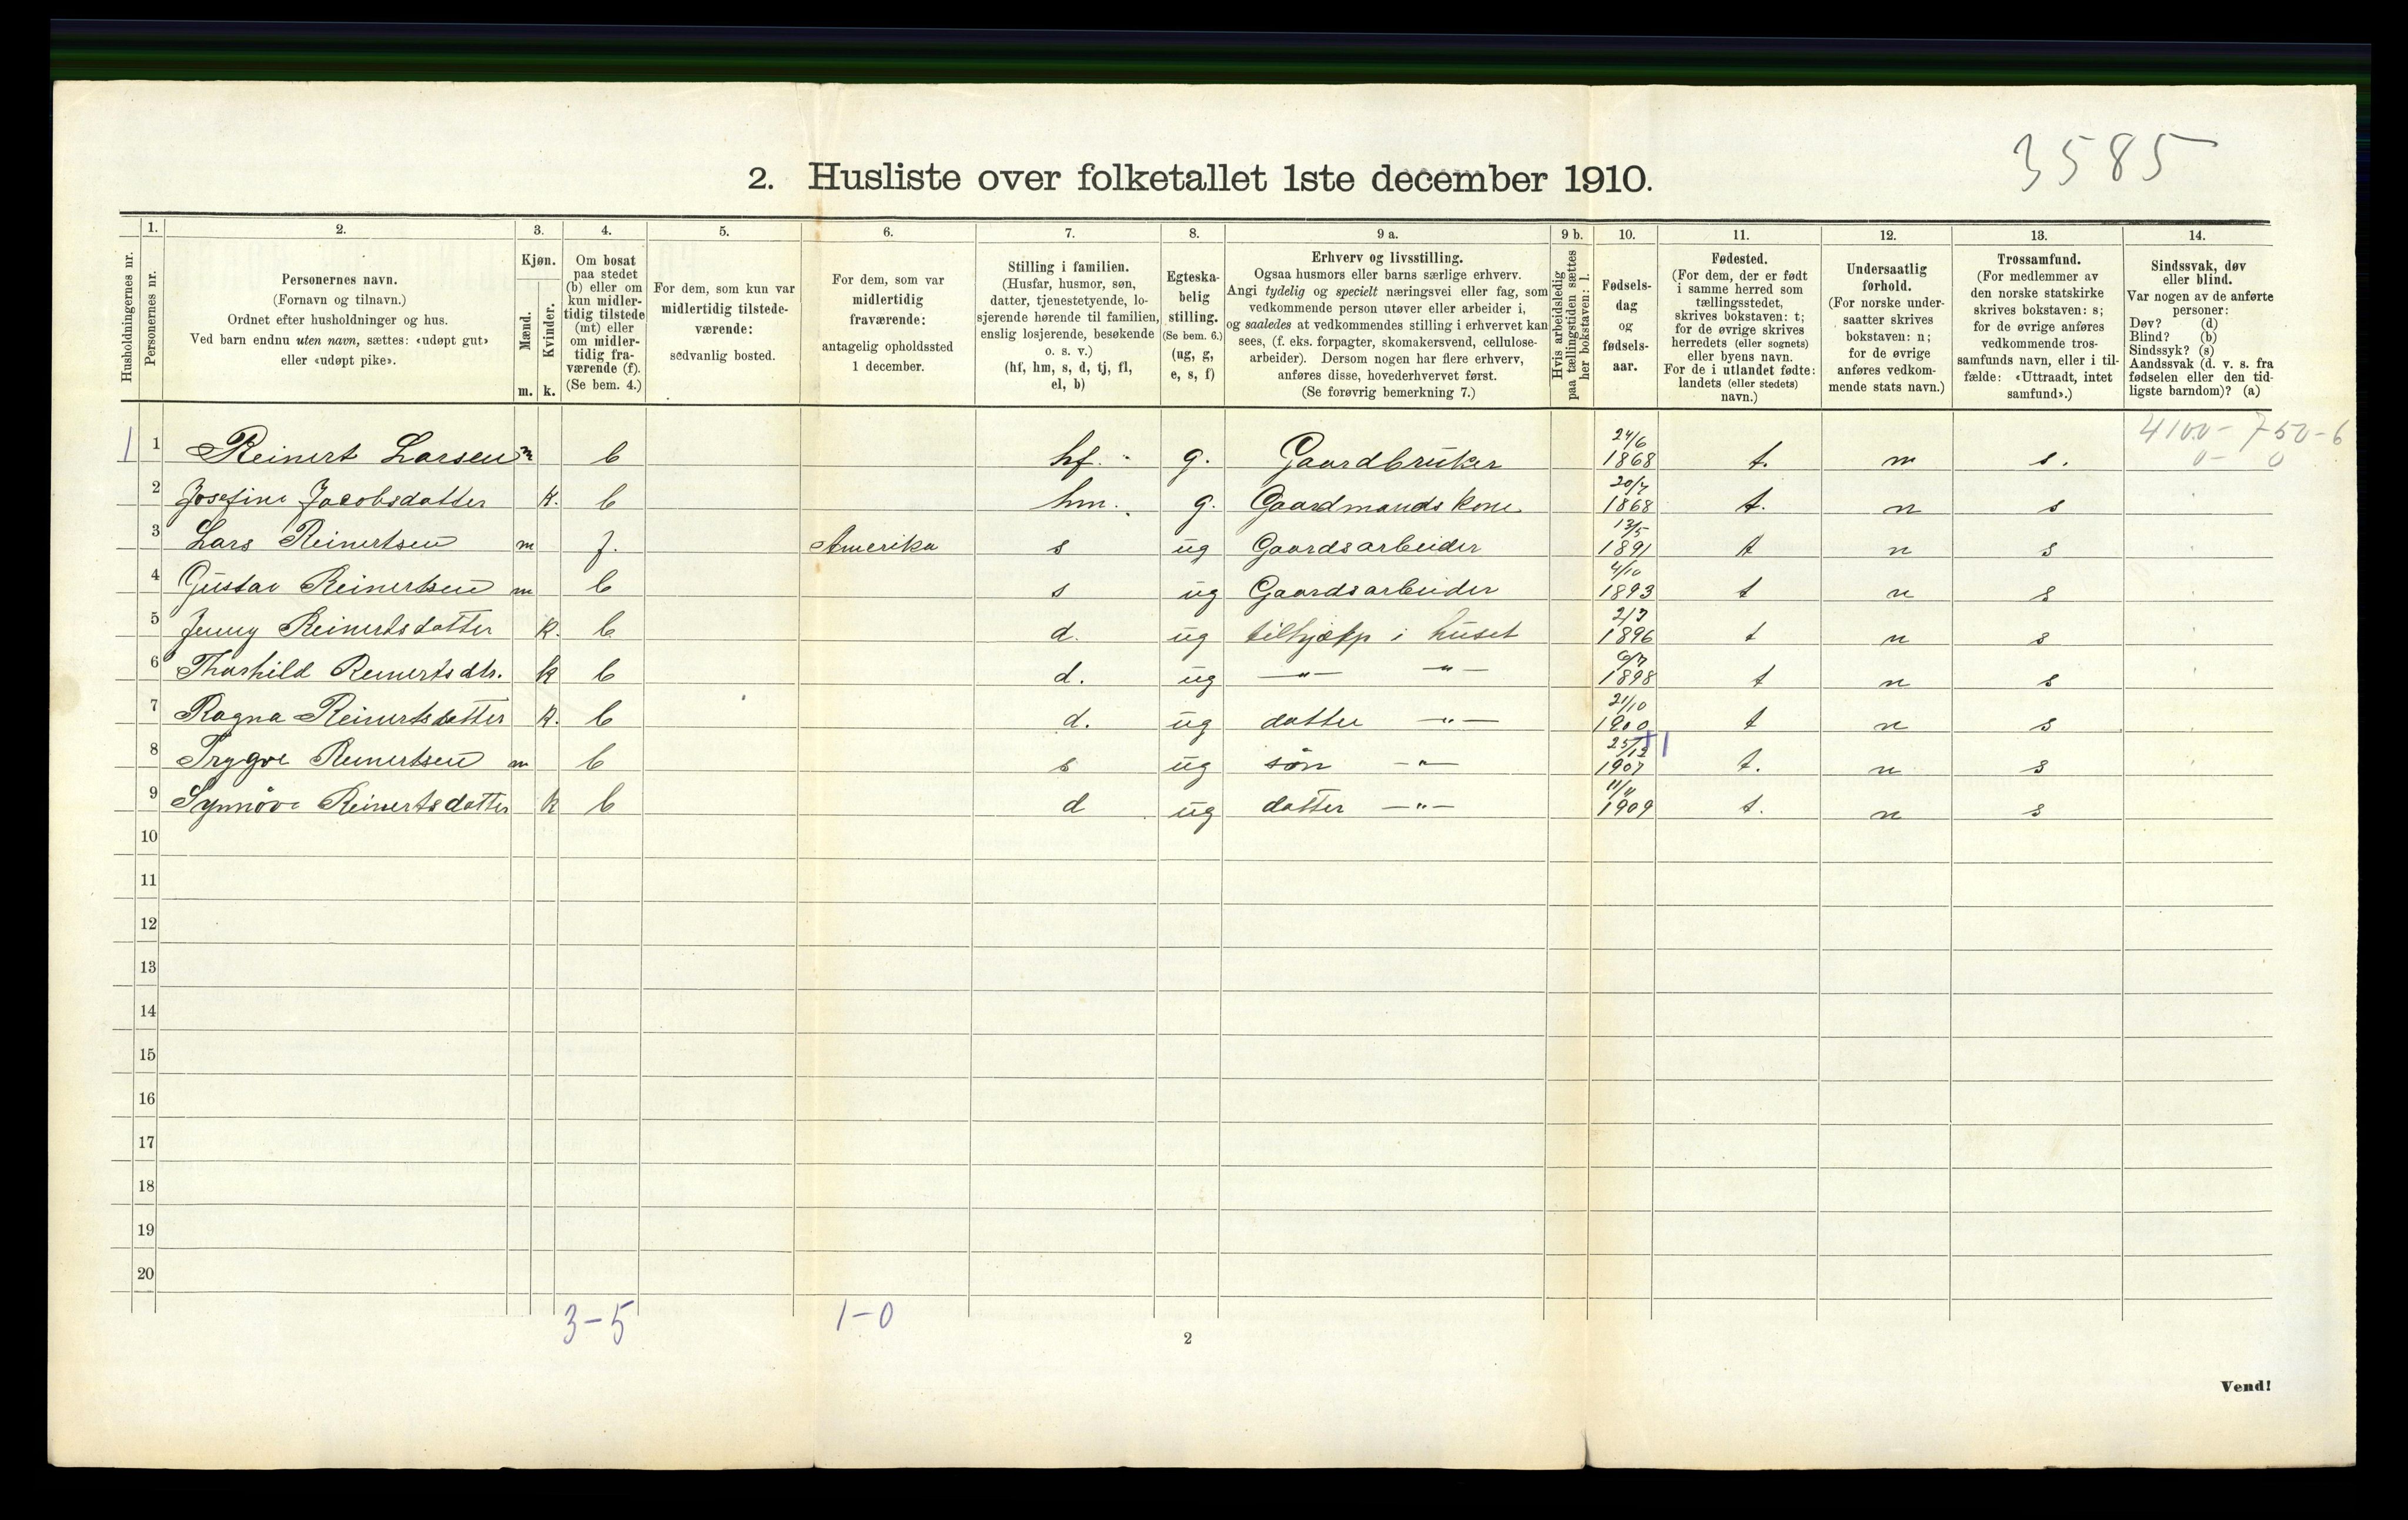 3585
2. Husliste over folketallet 1ste december 1910.
Husholdningernes nr.
1. Personernes nr.
2. Personernes navn.
(Fornavn og tilnavn.)
Ordnet efter husholdninger og hus.
Ved barn endnu uten navn, sættes: «udøpt gut»
eller «udøpt pike».
3. Kjøn.
Mænd. m.
Kvinder. k.
4. Om bosat
paa stedet
(b) eller om
kun midler-
tidig tilstede
(mt) eller
om midler-
tidig fra-
værende (f).
(Se bem. 4.)
5. For dem, som kun var
midlertidig tilstede-
værende:
sedvanlig bosted.
6. For dem, som var
midlertidig
fraværende:
antagelig opholdssted
1 december.
7. Stilling i familien.
(Husfar, husmor, søn,
datter, tjenestetyende, lo-
sjerende hørende til familien,
enslig losjerende, besøkende
o. s. v.)
(hf, hm, s, d, tj, fl,
el, b)
8. Egteska-
belig
stilling.
(Se bem. 6.)
(ug, g,
e, s, f)
9 a. Erhverv og livsstilling.
Ogsaa husmors eller barns særlige erhverv.
Angi tydelig og specielt næringsvei eller fag, som
vedkommende person utøver eller arbeider i,
og saaledes at vedkommendes stilling i erhvervet kan
sees, (f. eks. forpagter, skomakersvend, cellulose-
arbeider). Dersom nogen har flere erhverv,
anføres disse, hovederhvervet først.
(Se forøvrig bemerkning 7.)
9 b. Hvis arbeidsledig
paa tællingstiden sættes
her bokstaven: l.
10. Fødsels-
dag
og
fødsels-
aar.
11. Fødested.
(For dem, der er født
i samme herred som
tællingsstedet,
skrives bokstaven: t;
for de øvrige skrives
herredets (eller sognets)
eller byens navn.
For de i utlandet fødte:
landets (eller stedets)
navn.)
12. Undersaatlig
forhold.
(For norske under-
saatter skrives
bokstaven: n;
for de øvrige
anføres vedkom-
mende stats navn.)
13. Trossamfund.
(For medlemmer av
den norske statskirke
skrives bokstaven: s;
for de øvrige anføres
vedkommende tros-
samfunds navn, eller i til-
fælde: «Uttraadt, intet
samfund».)
14. Sindssvak, døv
eller blind.
Var nogen av de anførte
personer:
Døv? (d)
Blind? (b)
Sindssyk? (s)
Aandssvak (d. v. s. fra
fødselen eller den tid-
ligste barndom)? (a)
4100 - 750 - 6
0 - 0
1 1 Reinert Larsen m b hf. g. Gaardbruker 24/6 1868 t. n s.
2 Josefine Jacobsdatter k. b hm. g. Gaardmandskone 20/7 1868 t. n s
3 Lars Reinertsen m f. Amerika s ug Gaardsarbeider 13/5 1891 t n s
4 Gustav Reinertsen m b s ug Gaardsarbeider 4/10 1893 t n s
5 Jenny Reinertsdatter k. b d. ug tilhjælp i huset 2/3 1896 t n s
6 Thorhild Reinertsdtr. k b d. ug —"— —"— 1898 t n s
7 Ragna Reinertsdatter k. b d. ug datter —"— 21/10 1900 t n s
8 Trygve Reinertsen m b s ug søn —"— 25/12 1907 t. n s
9 Synnøve Reinertsdatter k b d ug datter —"— 11/11 1909 t. n s
10
11
12
13
14
15
16
17
18
19
20
3-5 1-0
2
Vend!